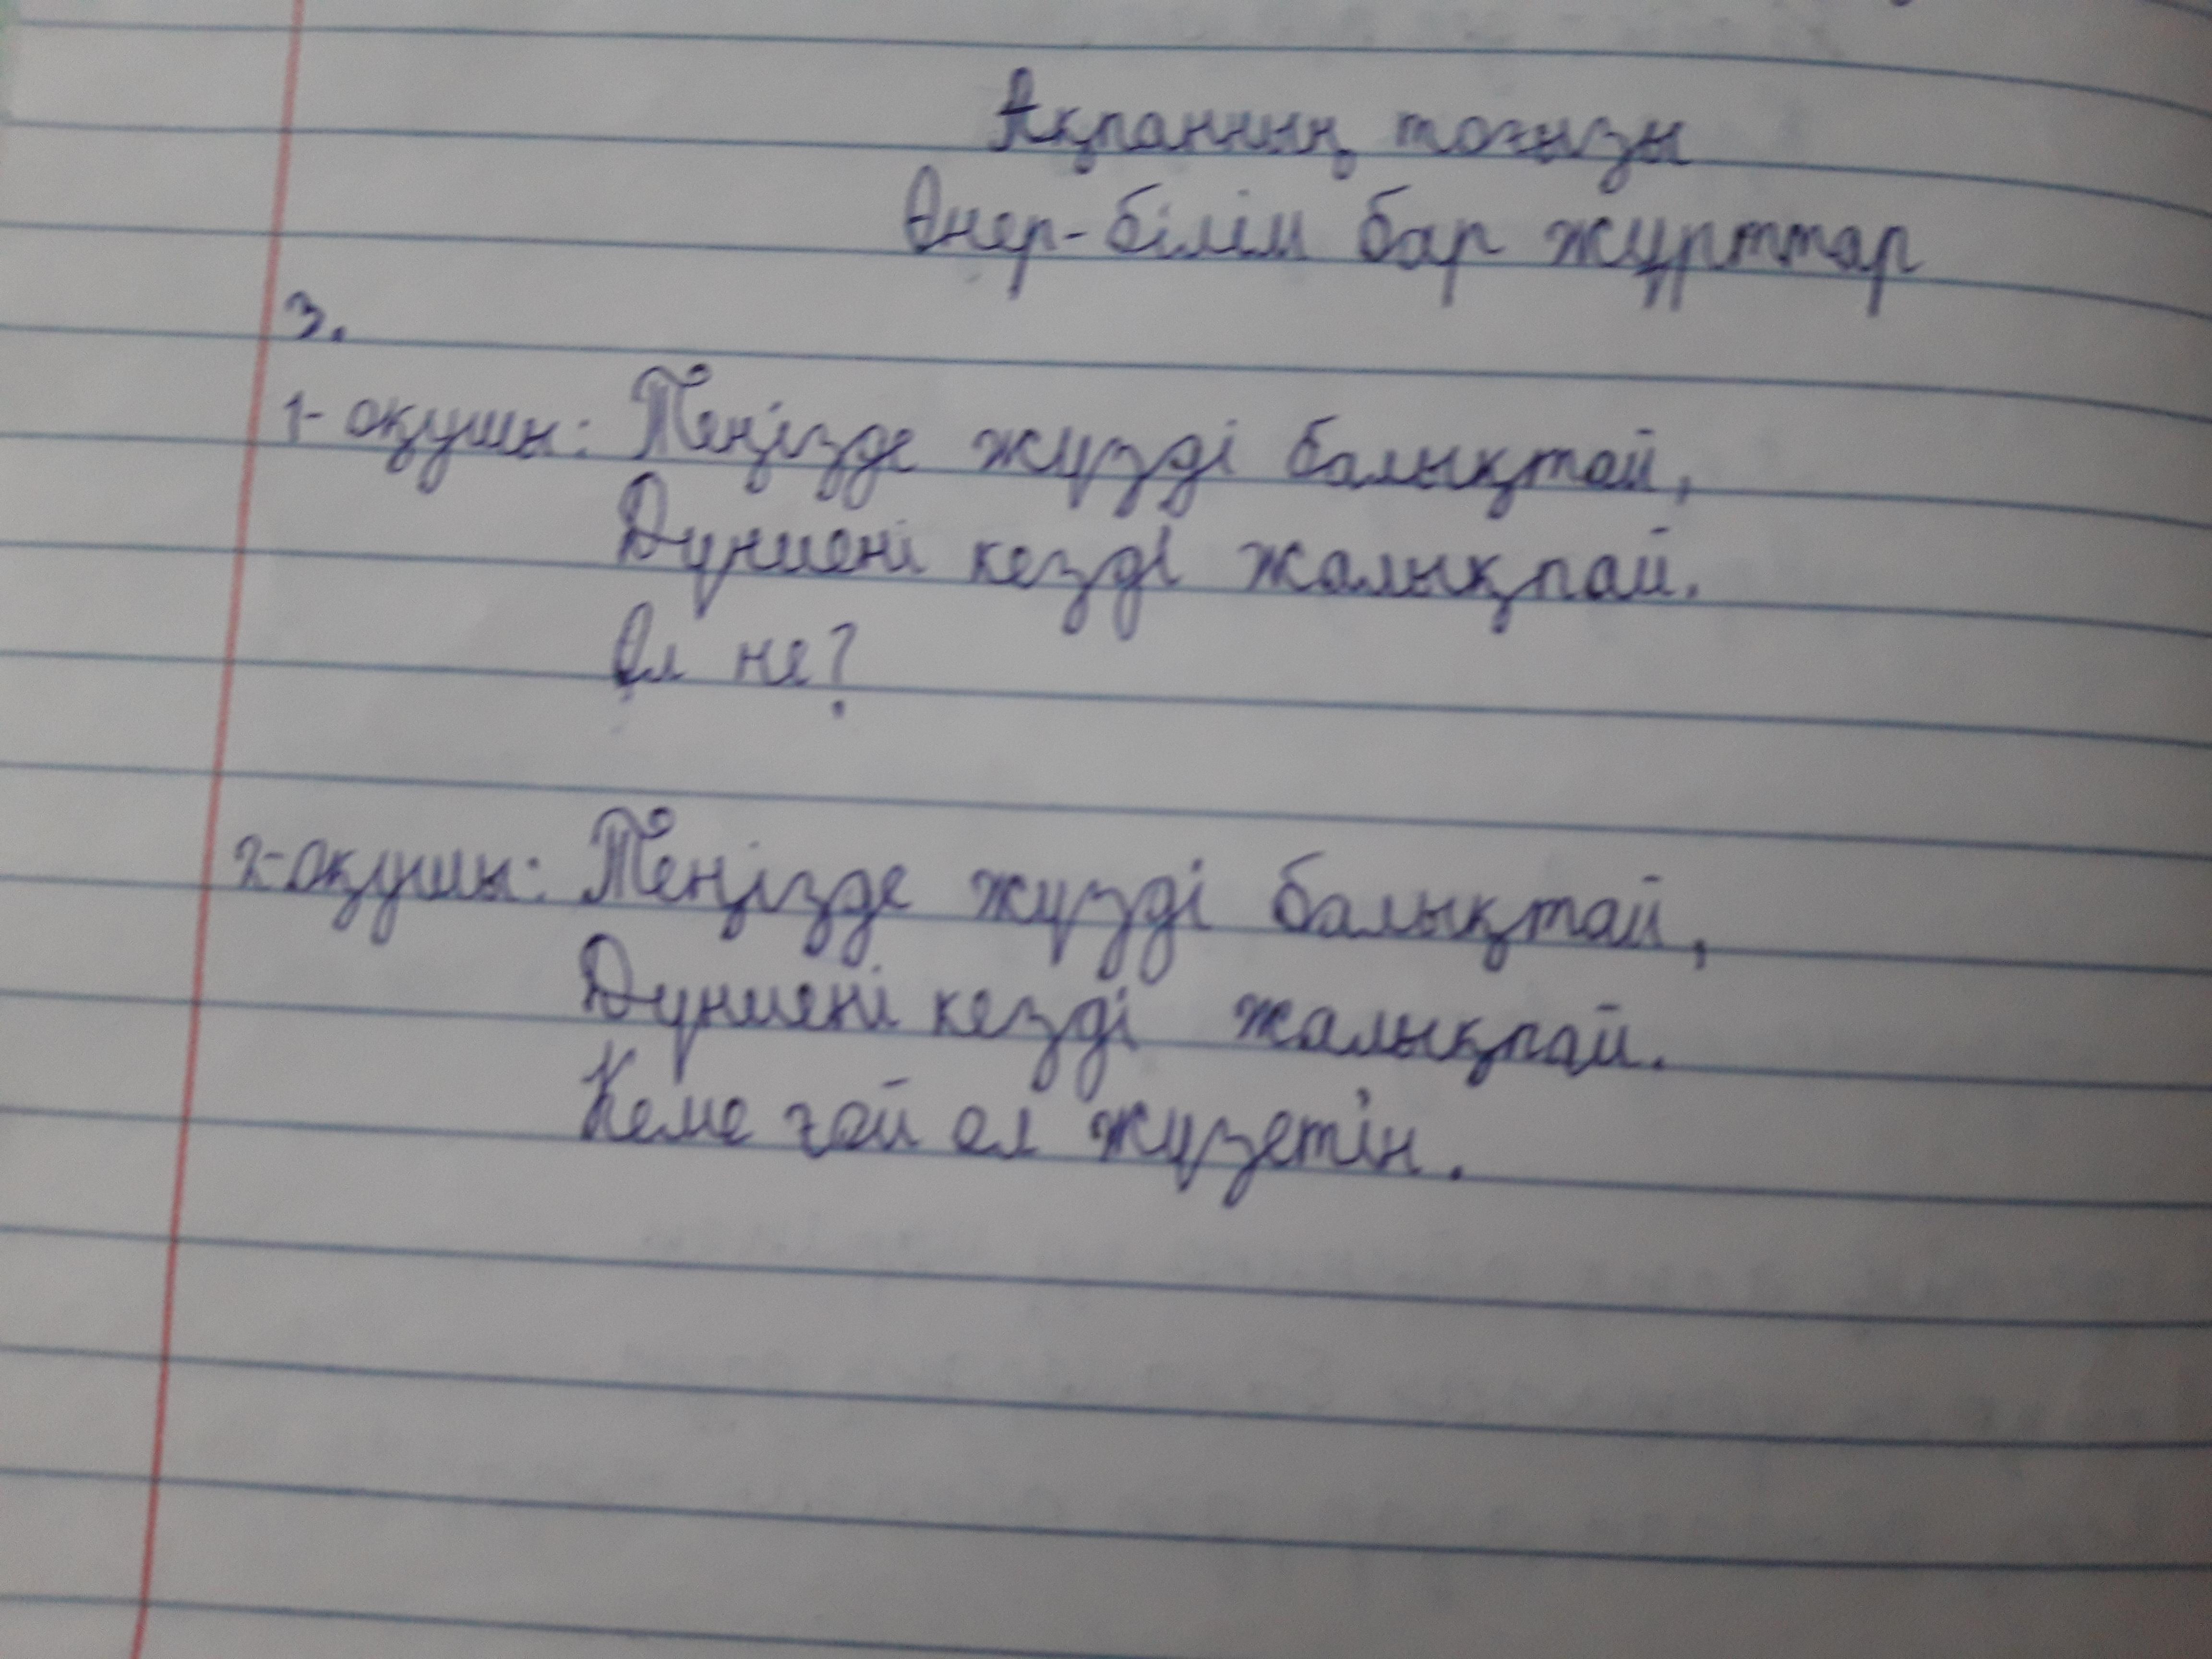 Ақпанның тоғызы
Өнер-білім бар жұрттар
3.
1- оқушы: Теңізде жүзді балықтай,
Дүниені кезді жалықпай.
Ол не?
2-оқушы: Теңізде жүзді балықтай,
Дүниені кезді жалықпай.
Кеме ғой ол жүзетін.